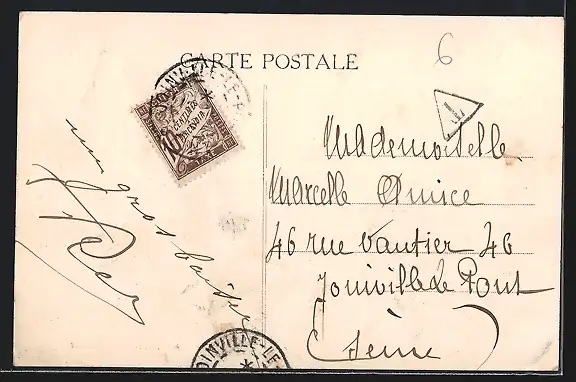 CARTE POSTALE
6
JOINVILLE-LE-P
10 CENTIMES
À PERCEVOIR
TAXE
T
un gros baiser
Mademoiselle
Marcelle Amice
46 rue Vautier 46
Joinville le Pont
(Seine)
JOINVILLE-LE-